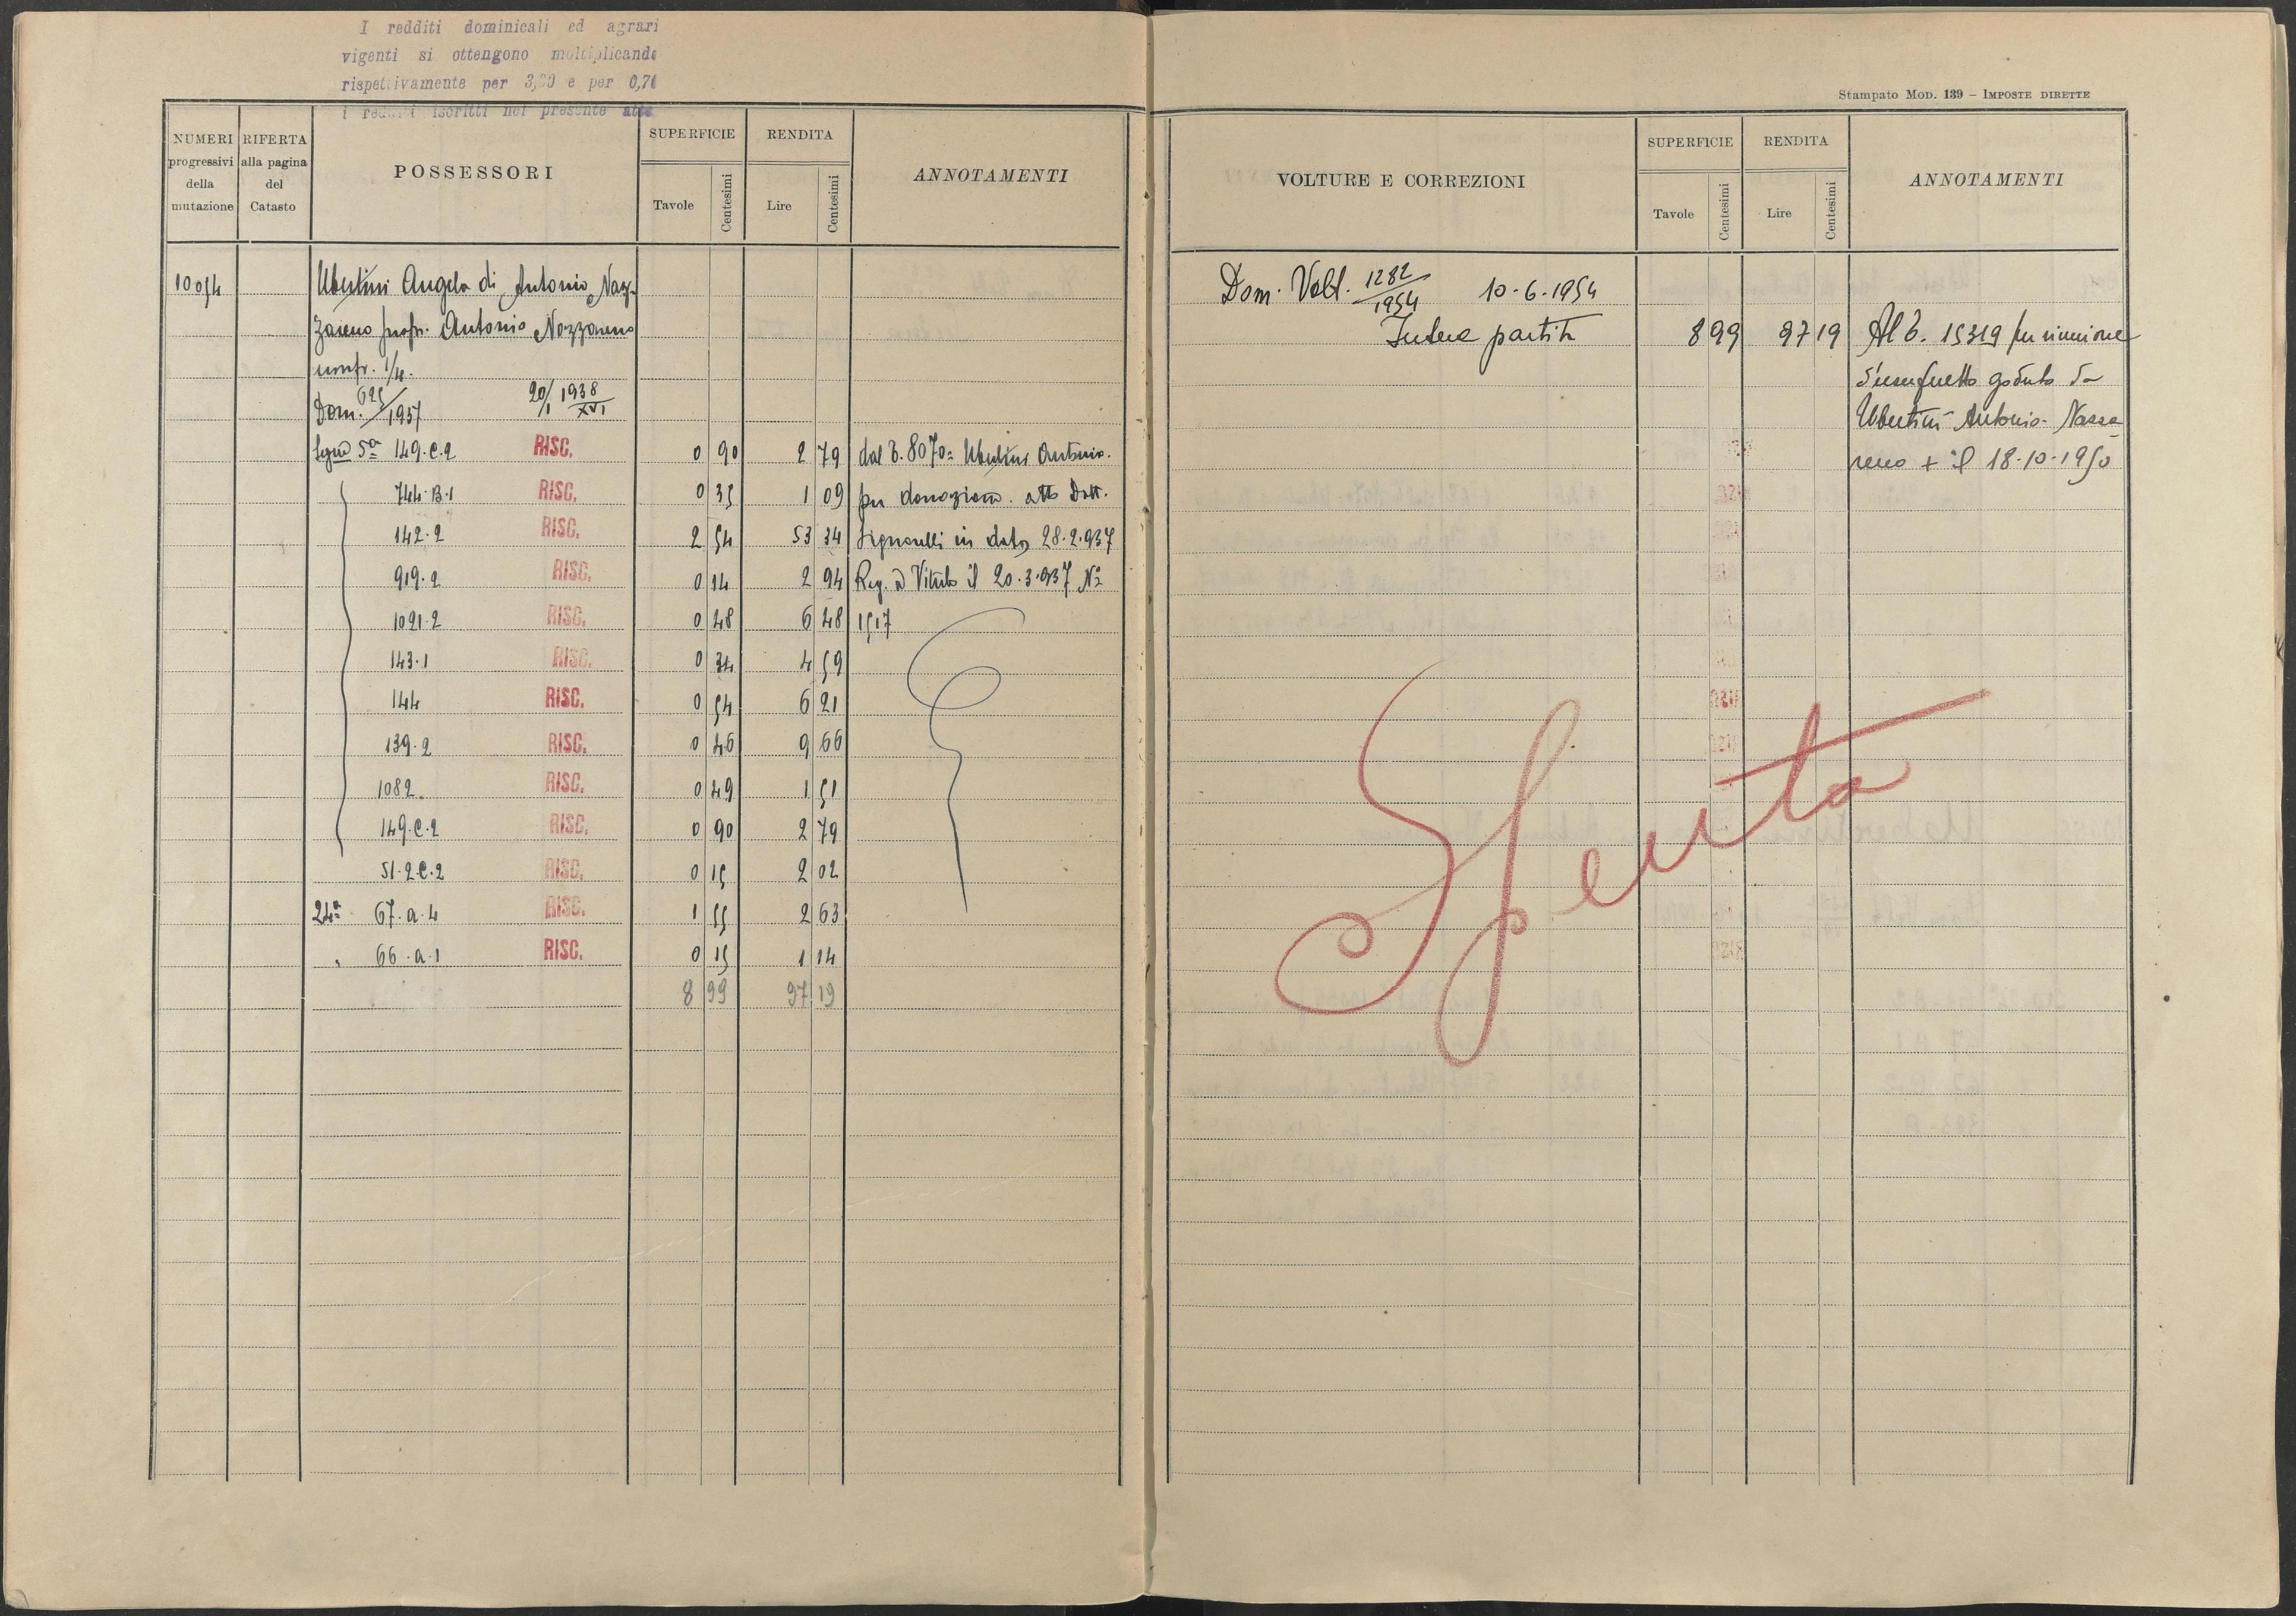 I redditi dominicali ed agrari
vigenti si ottengono moltiplicando
rispettivamente per 3,20 e per 0,70
i redditi iscritti nel presente atto
NUMERI progressivi della mutazione
RIFERTA alla pagina del Catasto
POSSESSORI
SUPERFICIE Tavole Centesimi
RENDITA Lire Centesimi
ANNOTAMENTI
10054 Ubertini Angela di Antonio Naz-
zareno propr. Antonio Nazzareno
usufr. 1/4.
Dom. 625/1937 20/1 1938 XVI
Segue 5ª 149.C.2 RISC. 0 90 2 79 dal N. 8070= Ubertini Antonio.
744.B.1 RISC. 0 35 1 09 per donazione. atto Dott.
142.2 RISC. 2 54 53 34 Signorelli in data 28.2.937
919.2 RISC. 0 14 2 94 Reg. a Viterbo il 20.3.937 Nº
1021.2 RISC. 0 48 6 48 1517
143.1 RISC. 0 34 4 59
144 RISC. 0 54 6 21
139.2 RISC. 0 46 9 66
1082. RISC. 0 49 1 51
149.C.2 RISC. 0 90 2 79
51.2.C.2 RISC. 0 15 2 02
24ª 67.a.4 RISC. 1 55 2 63
" 66.a.1 RISC. 0 15 1 14
8 99 97 19
Stampato MOD. 139 – IMPOSTE DIRETTE
VOLTURE E CORREZIONI
SUPERFICIE Tavole Centesimi
RENDITA Lire Centesimi
ANNOTAMENTI
Dom. Volt. 1282/1954 10-6-1954
Intera partita 8 99 97 19 Al N. 15319 per riunione
d'usufrutto goduto da
Ubertini Antonio Nazza
reno + il 18-10-1950
Spenta